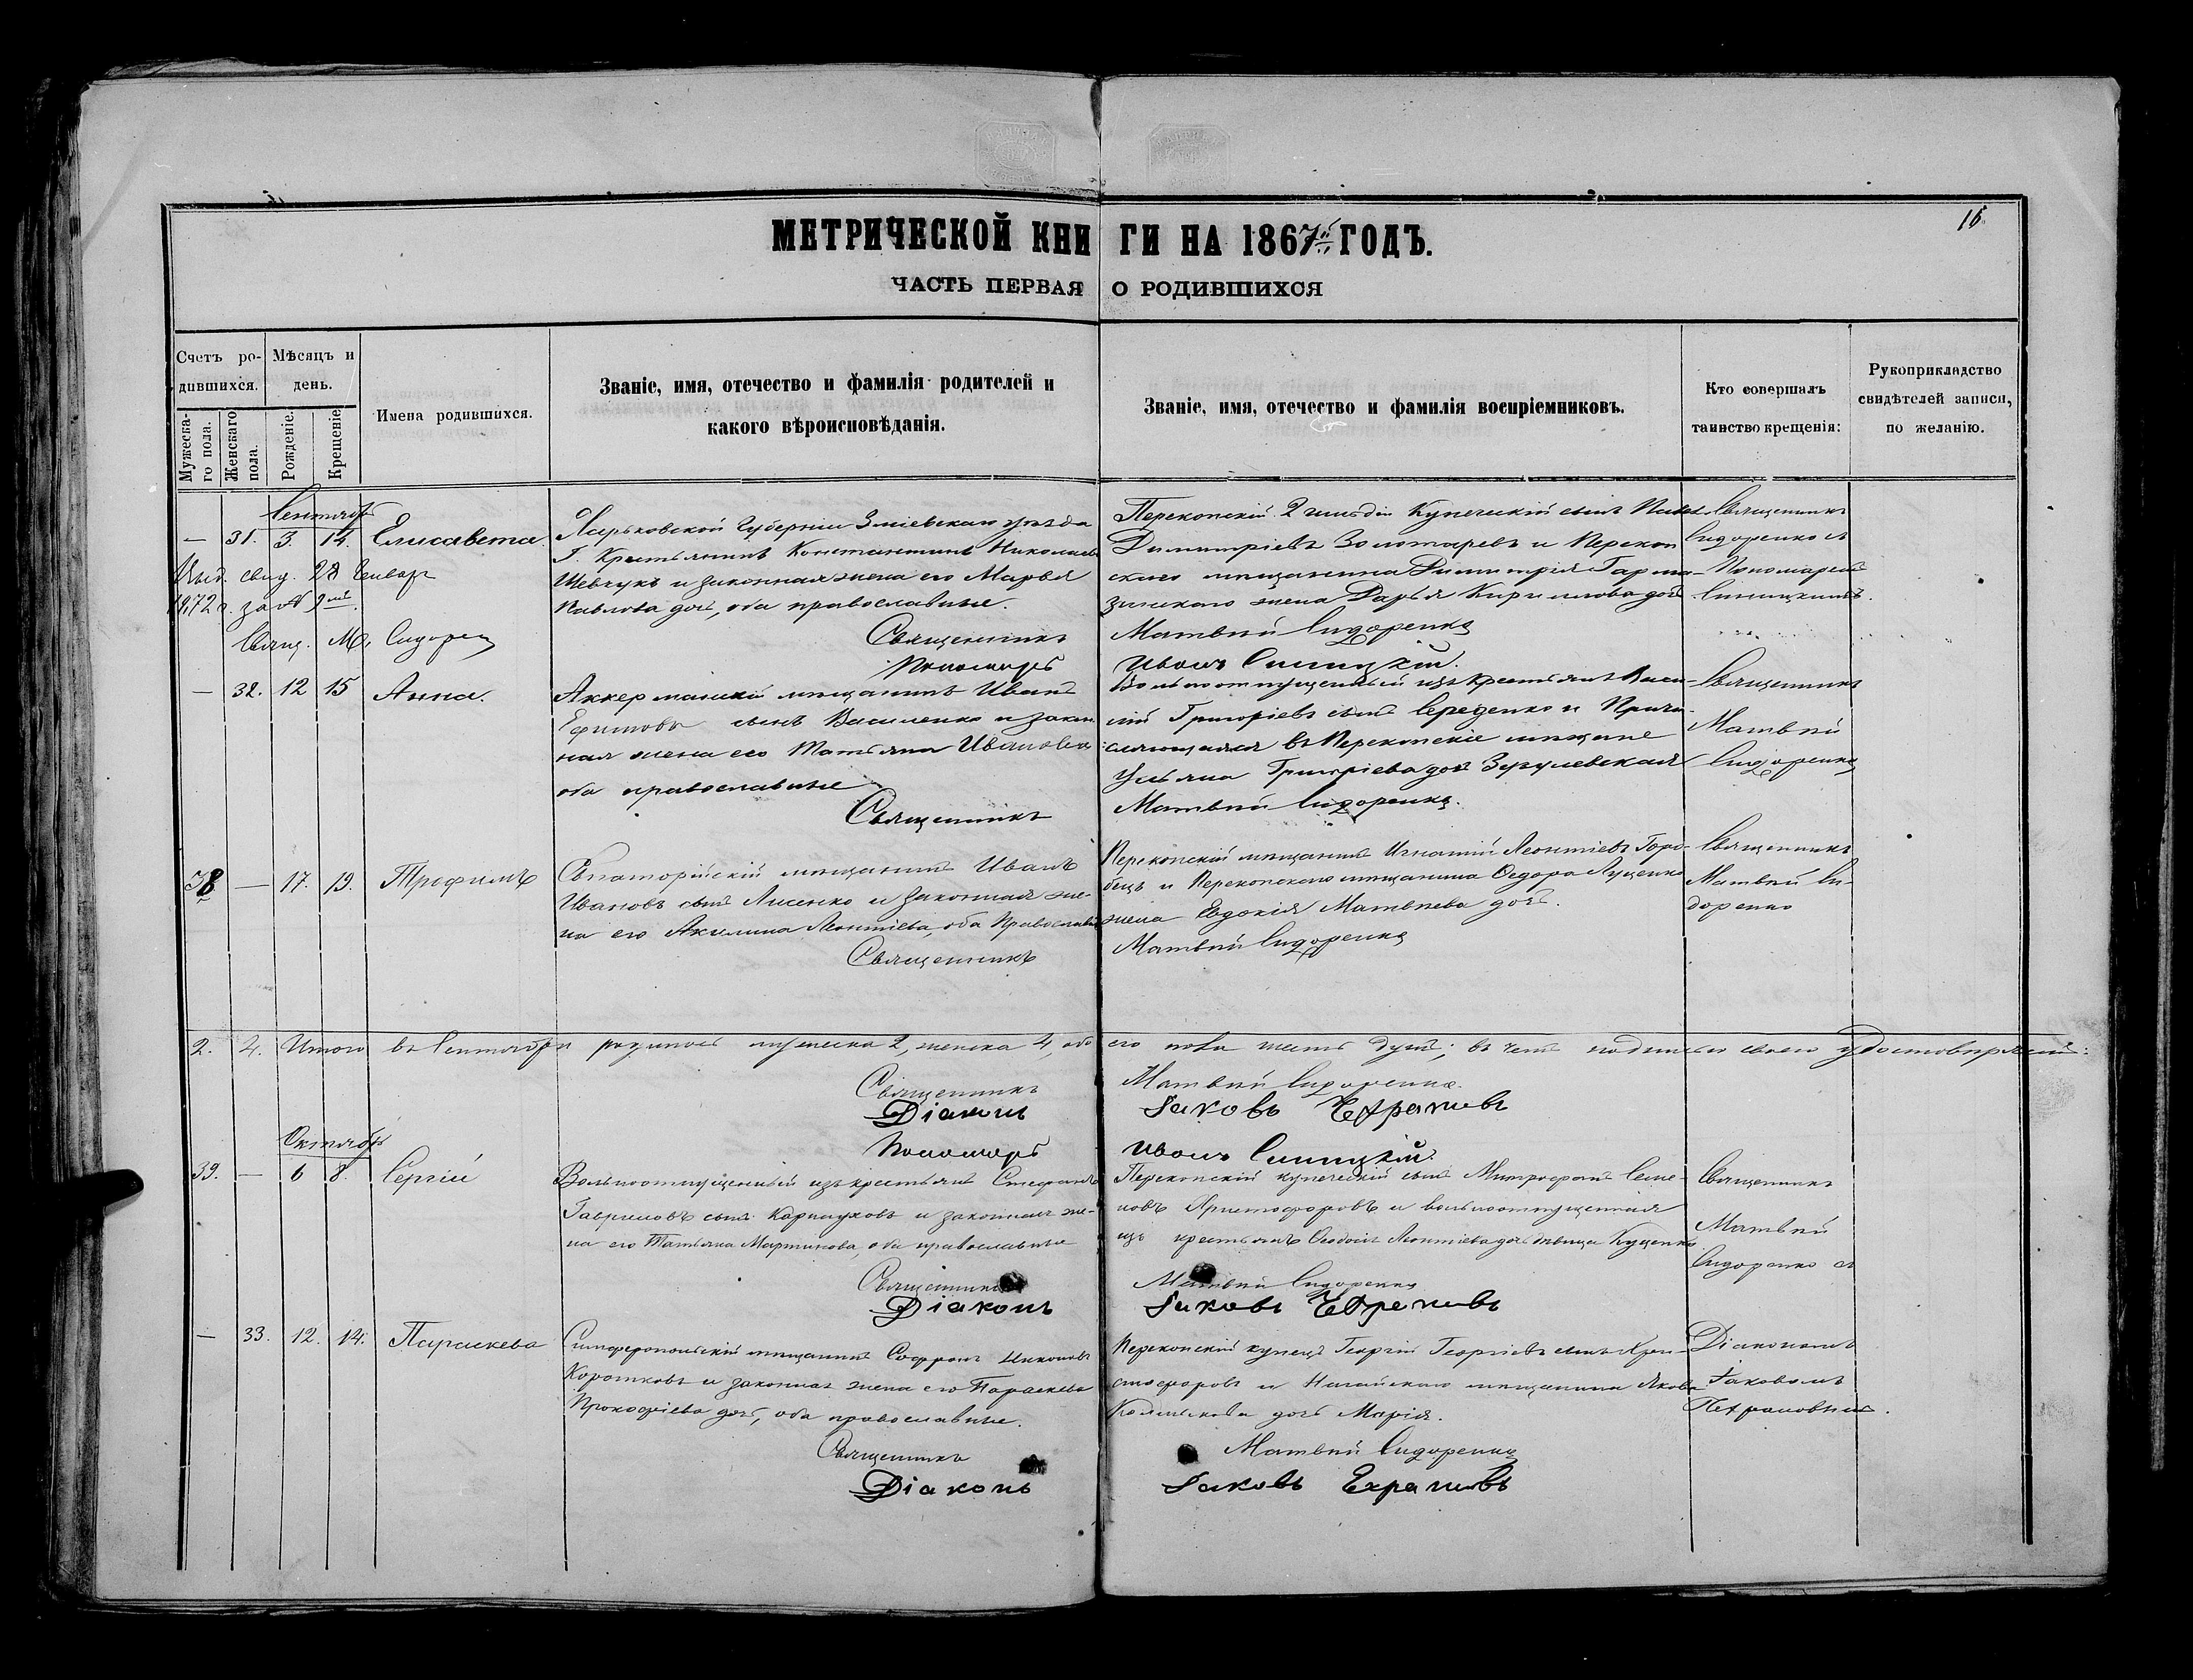 16
МЕТРИЧЕСКОЙ КНИГИ НА 1867й ГОДЪ.
ЧАСТЬ ПЕРВАЯ О РОДИВШИХСЯ
Счетъ ро-
дившихся.
Мужеска-
го пола.
Женскаго
пола.
Мѣсяцъ и
день.
Рожденіе.
Крещеніе
Имена родившихся.
Званіе, имя, отечество и фамилія родителей и
какого вѣроисповѣданія.
Званіе, имя, отечество и фамилія воспріемниковъ.
Кто совершалъ
таинство крещенія:
Рукоприкладство
свидѣтелей записи,
по желанію.
Сентябрь
— 31. 3. 14. Елисавета.
Харьковской Губерніи Зміевскаго уѣзда
Г. Крестьянинъ Константинъ Николаевъ
Шевчукъ и законная жена его Марья
Павлова дочь, оба православные.
Перекопскій 2 гильдіи Купеческій сынъ
Димитріевъ Золотаревъ и Перекоп
скаго мѣщанина Димитрія Гарма-
зинскаго жена Дарья Кириллова дочь
Священникъ
Сидоренко съ
Пономаремъ
Синицкимъ.
Выд. свид. 28 Январ
1872 г. за № 9мъ.
Свящ. М. Сидорен
Священникъ Матвѣй Сидоренко
Пономарь Иванъ Синицкій.
— 32. 12 15 Анна.
Аккерманскій мѣщанинъ Иванъ
Ефимовъ сынъ Василенко и закон
ная жена его Татьяна Иванова
оба православные
Вольноотпущенный изъ крестьянъ Васи-
лій Григорьевъ сынъ Середенко и Причи-
сляющаяся въ Перекопскіе мѣщане
Ульяна Григоріева дочь Зегулевская
Священникъ
Матвѣй
Сидоренко
Священникъ Матвѣй Сидоренко.
38 — 17. 19. Трофимъ
Евпаторійскій мѣщанинъ Иванъ
Ивановъ сынъ Лисенко и законная же-
на его Акилина Леонтіева, оба Православн
Перекопскій мѣщанинъ Игнатій Леонтіевъ Горо-
бецъ и Перекопскаго мѣщанина Ѳедора Луценко
жена Евдокія Матвѣева дочь.
Священникъ
Матвѣй Си-
доренко
Священникъ Матвѣй Сидоренко
2. 4. Итого въ Сентябрѣ родилось мужеска 2, женска 4, обо его пола шесть душъ; въ чемъ подписью своею удостовѣряемъ:
Священникъ Матвѣй Сидоренко.
Діаконъ Іаковъ
Пономарь Иванъ Синицкій.
Октябрь
39. — 6 8. Сергій
Вольноотпущенный изъ крестьянъ Стефанъ
Гавриловъ сынъ Карнауховъ и законная же-
на его Татьяна Мартинова, оба православные
Перекопскій купеческій сынъ Митрофанъ Семе-
новъ Христофоровъ и вольноотпущенная
изъ крестьянъ Леонтіева дочь дѣвица Куценко
Священникъ
Матвѣй
Сидоренко съ
Священникъ Матвѣй Сидоренко
Діаконъ Іаковъ
— 33. 12. 14. Параскева
Симферопольскій мѣщанинъ Софронъ Никоновъ
Коротковъ и законная жена его Параскева
Прокофіева дочь, оба православные.
Перекопскій купецъ Георгій Георгіевъ сынъ Хри-
стофоровъ и Ногайскаго мѣщанина Якова
дочь Марія.
Діакономъ
Іаковомъ
Священникъ Матвѣй Сидоренко
Діаконъ Іаковъ